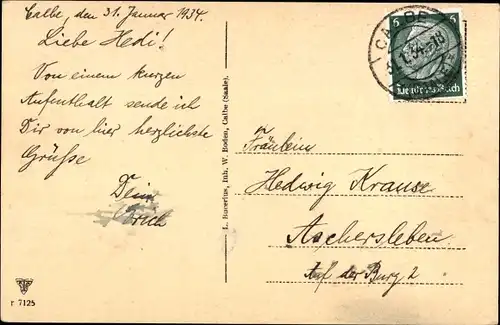 Calbe, den 31. Januar 1934.
Liebe Hedi!
Von einem kurzen
Aufenthalt sende ich
Dir von hier herzlichste
Grüße
Dein
Erich
r 7125
L. Bucerius, Inh. W. Boden, Calbe (Saale).
6
CALBE
31.1.34.-18
Deutsches Reich
Fräulein
Hedwig Krause
Aschersleben
Auf der Burg 2